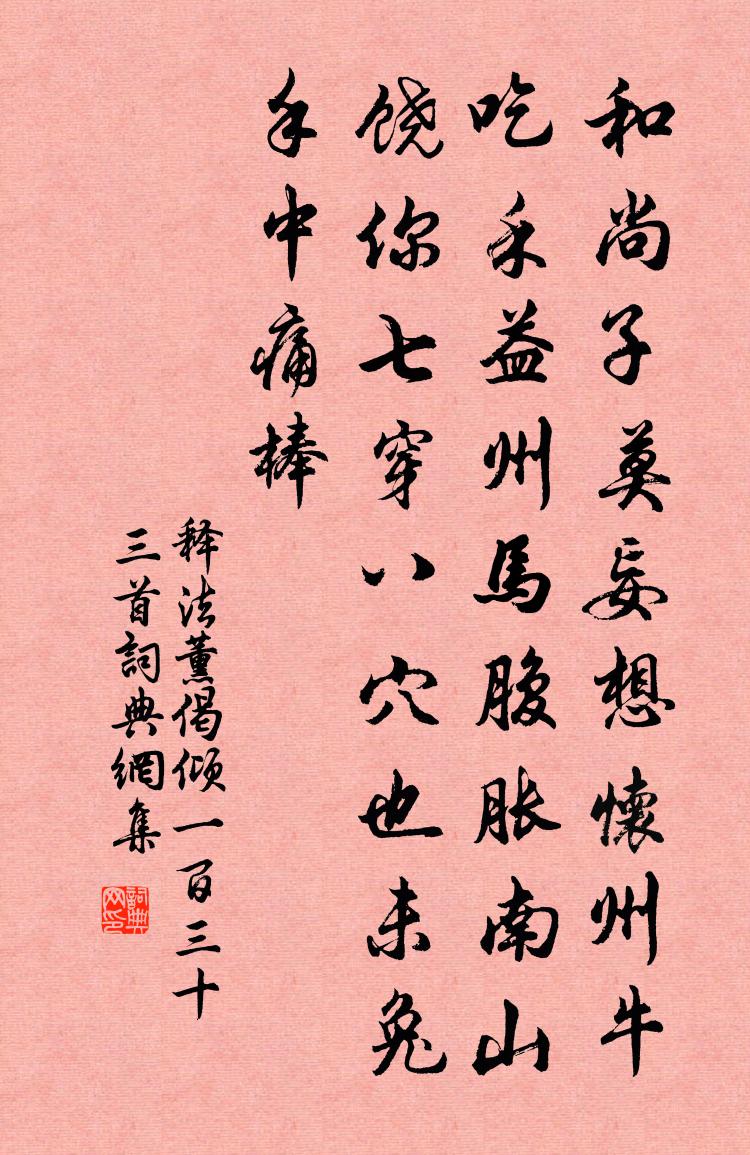 和尚子莫妄想懷州牛
吃禾益州馬腹胀南山
饶你七穿八穴也未兔
手中痛棒
释法薰偈倾一百三十
三首詞典網集
詞典
网印